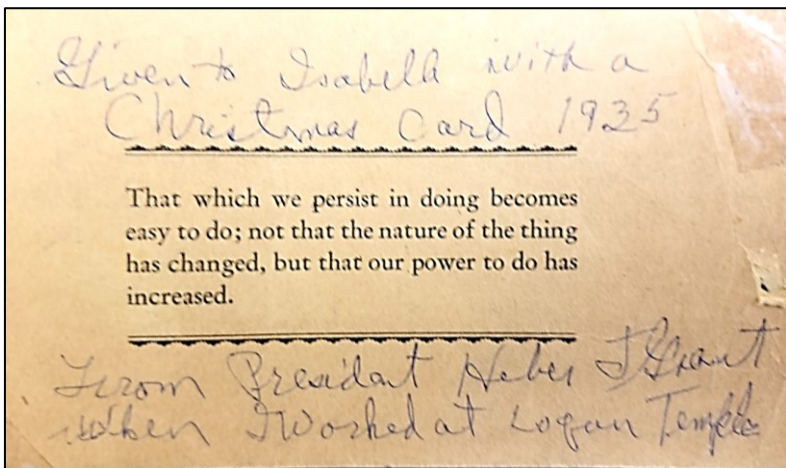 Given to Isabell with a
Christmas Card 1935
That which we persist in doing becomes
easy to do; not that the nature of the thing
has changed, but that our power to do has
increased.
From President Heber J Grant
when I Worked at Logan Temple